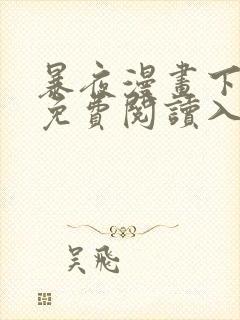 暴夜漫畫下
免費閱讀入
吴飛